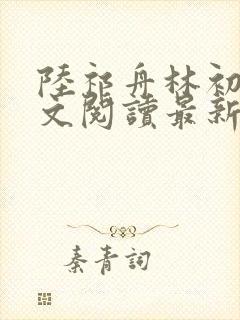 陸祁舟林初
文閱讀最新
秦青詞